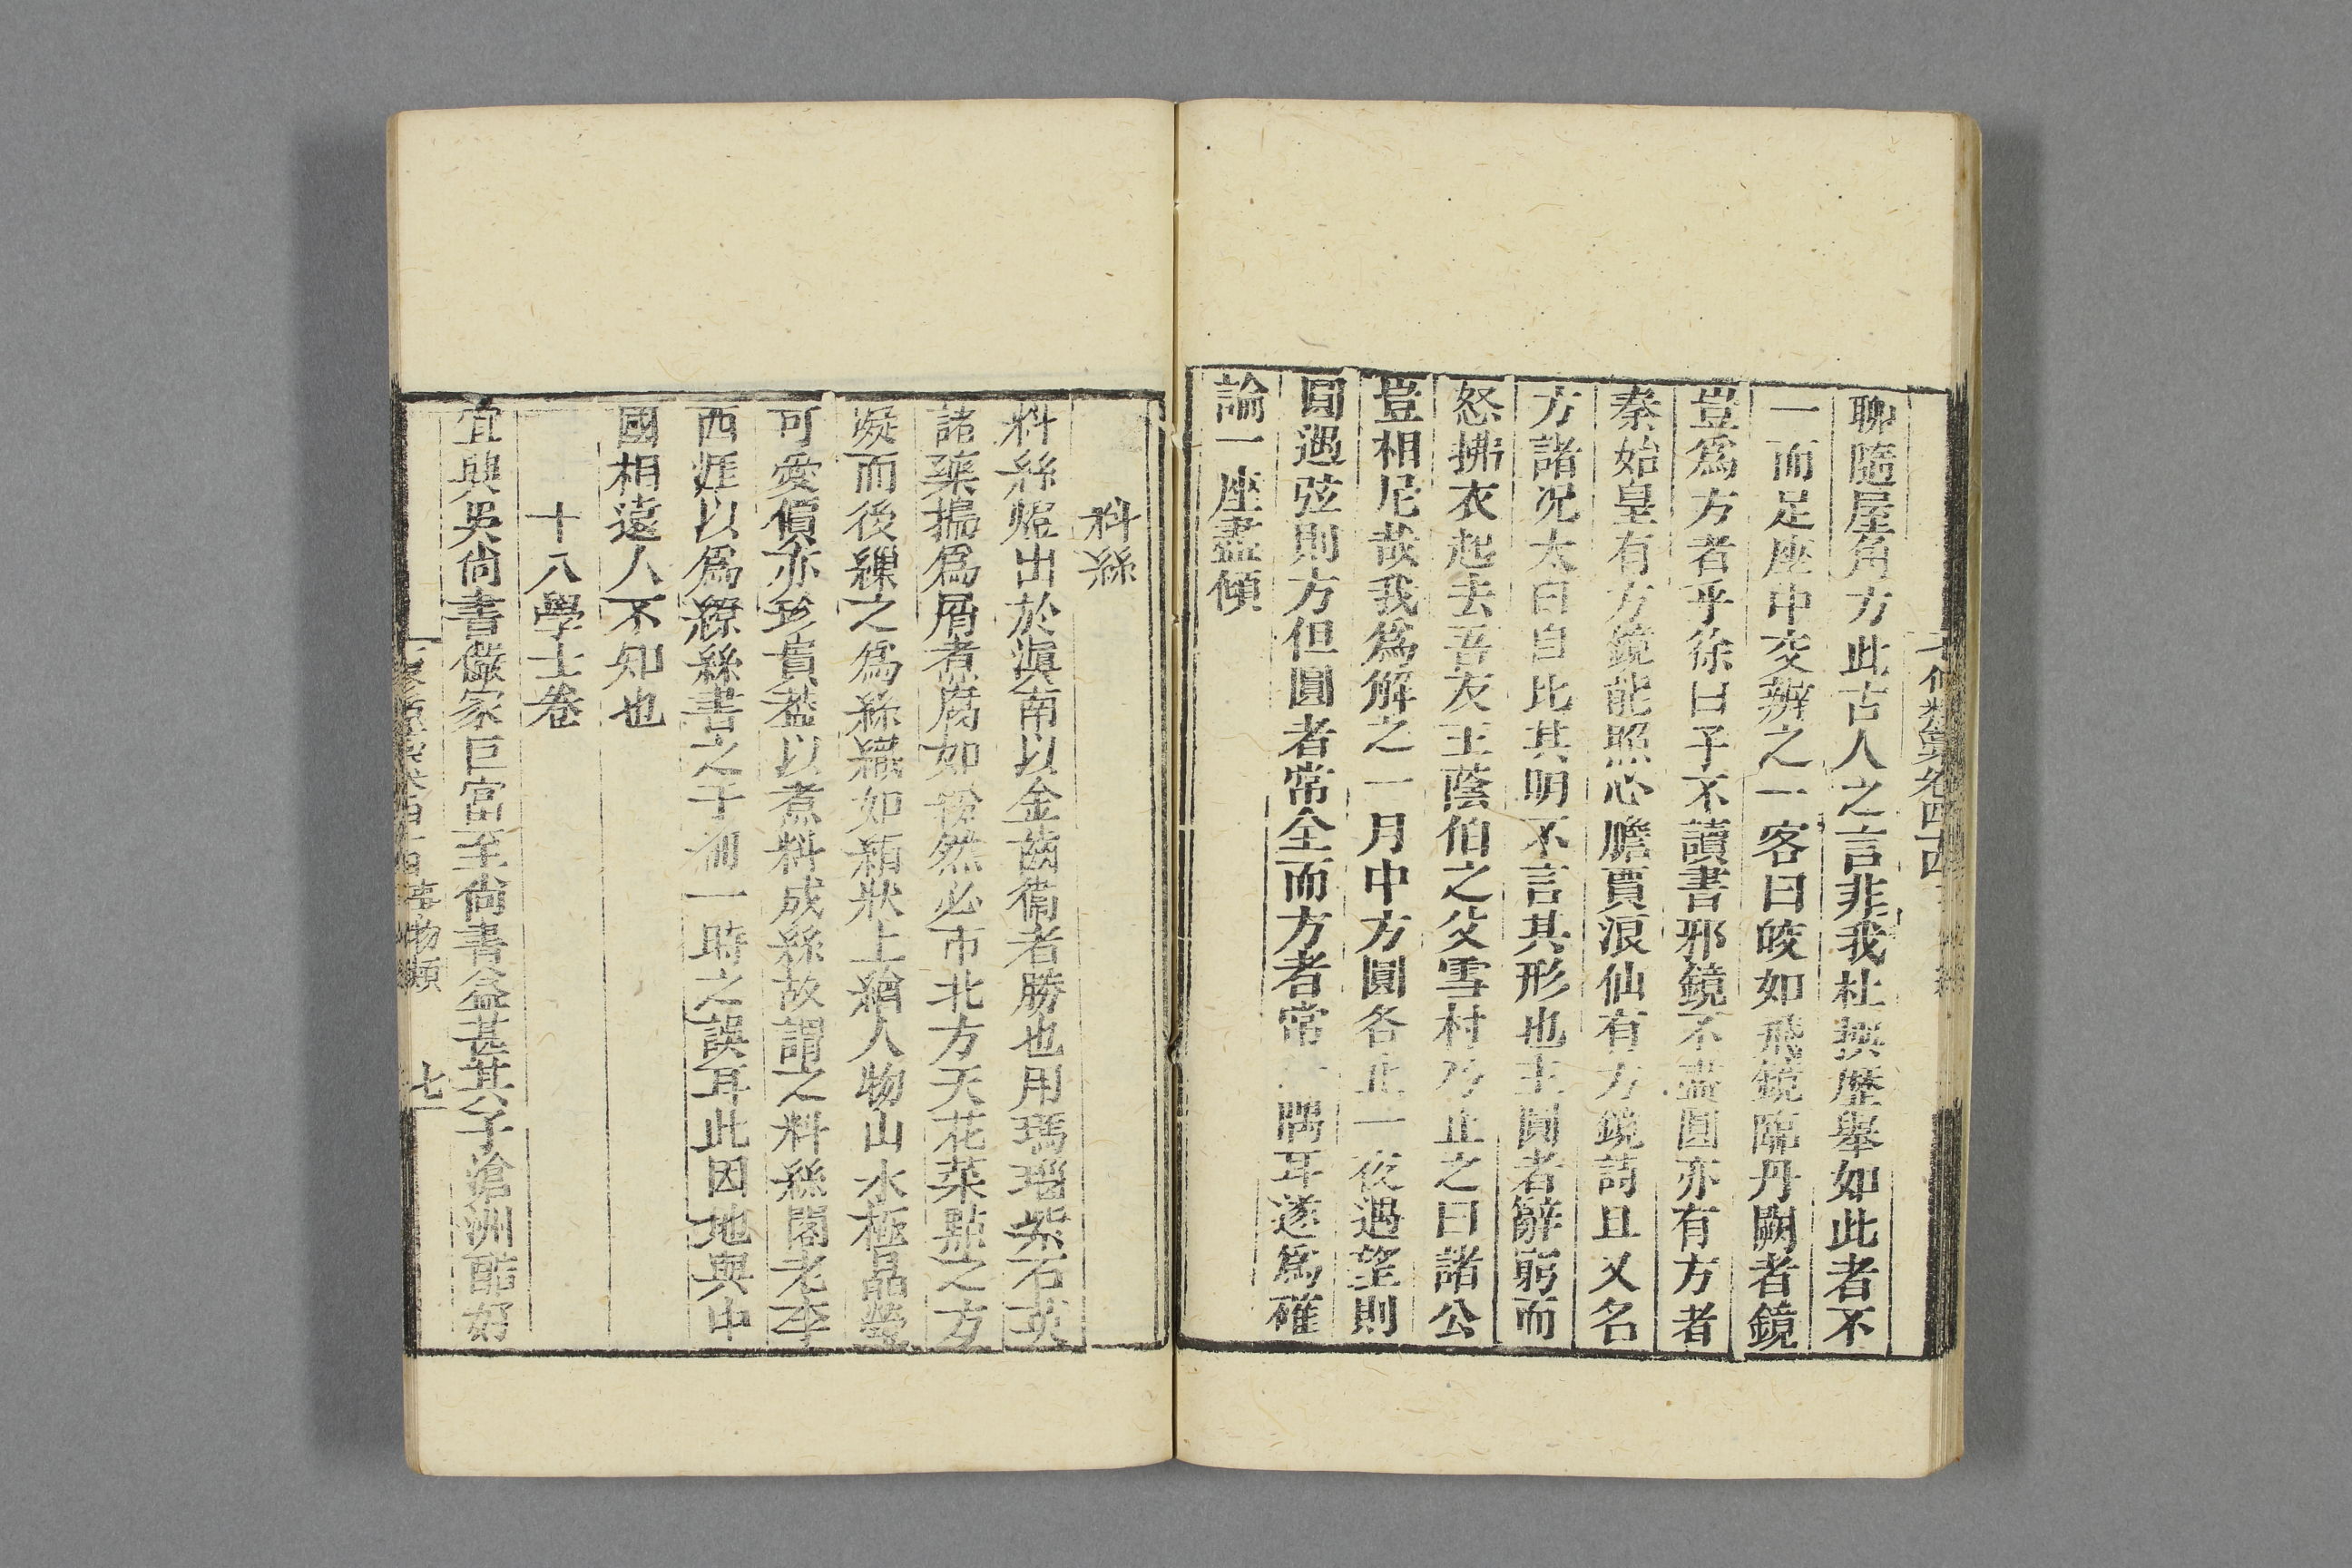 聊隨屋角方此古人之言非我杜撰歷舉如此者不
一而足座中交辨之一客曰皎如飛鏡臨丹闕者鏡
豈爲方者乎徐曰子不讀書邪鏡不盡圓亦有方者
秦始皇有方鏡能照心膽賈浪仙有方鏡詩且又名
方諸况太白自比其明不言其形也主圓者辭窮而
怒拂衣起去吾友王蔭伯之父雪村乃止之曰諸公
豈相尼哉我爲解之一月中方圓各止一夜遇望則
圓遇弦則方但圓者常全而方者常一隅耳遂爲確
論一座盡傾
料絲
料絲燈出於滇南以金齒衞者勝也用瑪瑙紫石英
諸藥搗爲屑煮腐如粉然必市北方天花菜點之方
凝而後繅之爲絲織如絹狀上繪人物山水極晶瑩
可愛價亦珍貴蓋以煮料成絲故謂之料絲閣老李
西涯以爲繚絲書之于册一時之誤耳此因地與中
國相遠人不知也
十八學士卷
宜興吳尚書儼家巨富至尚書益甚其子滄洲酷好
事物類
七